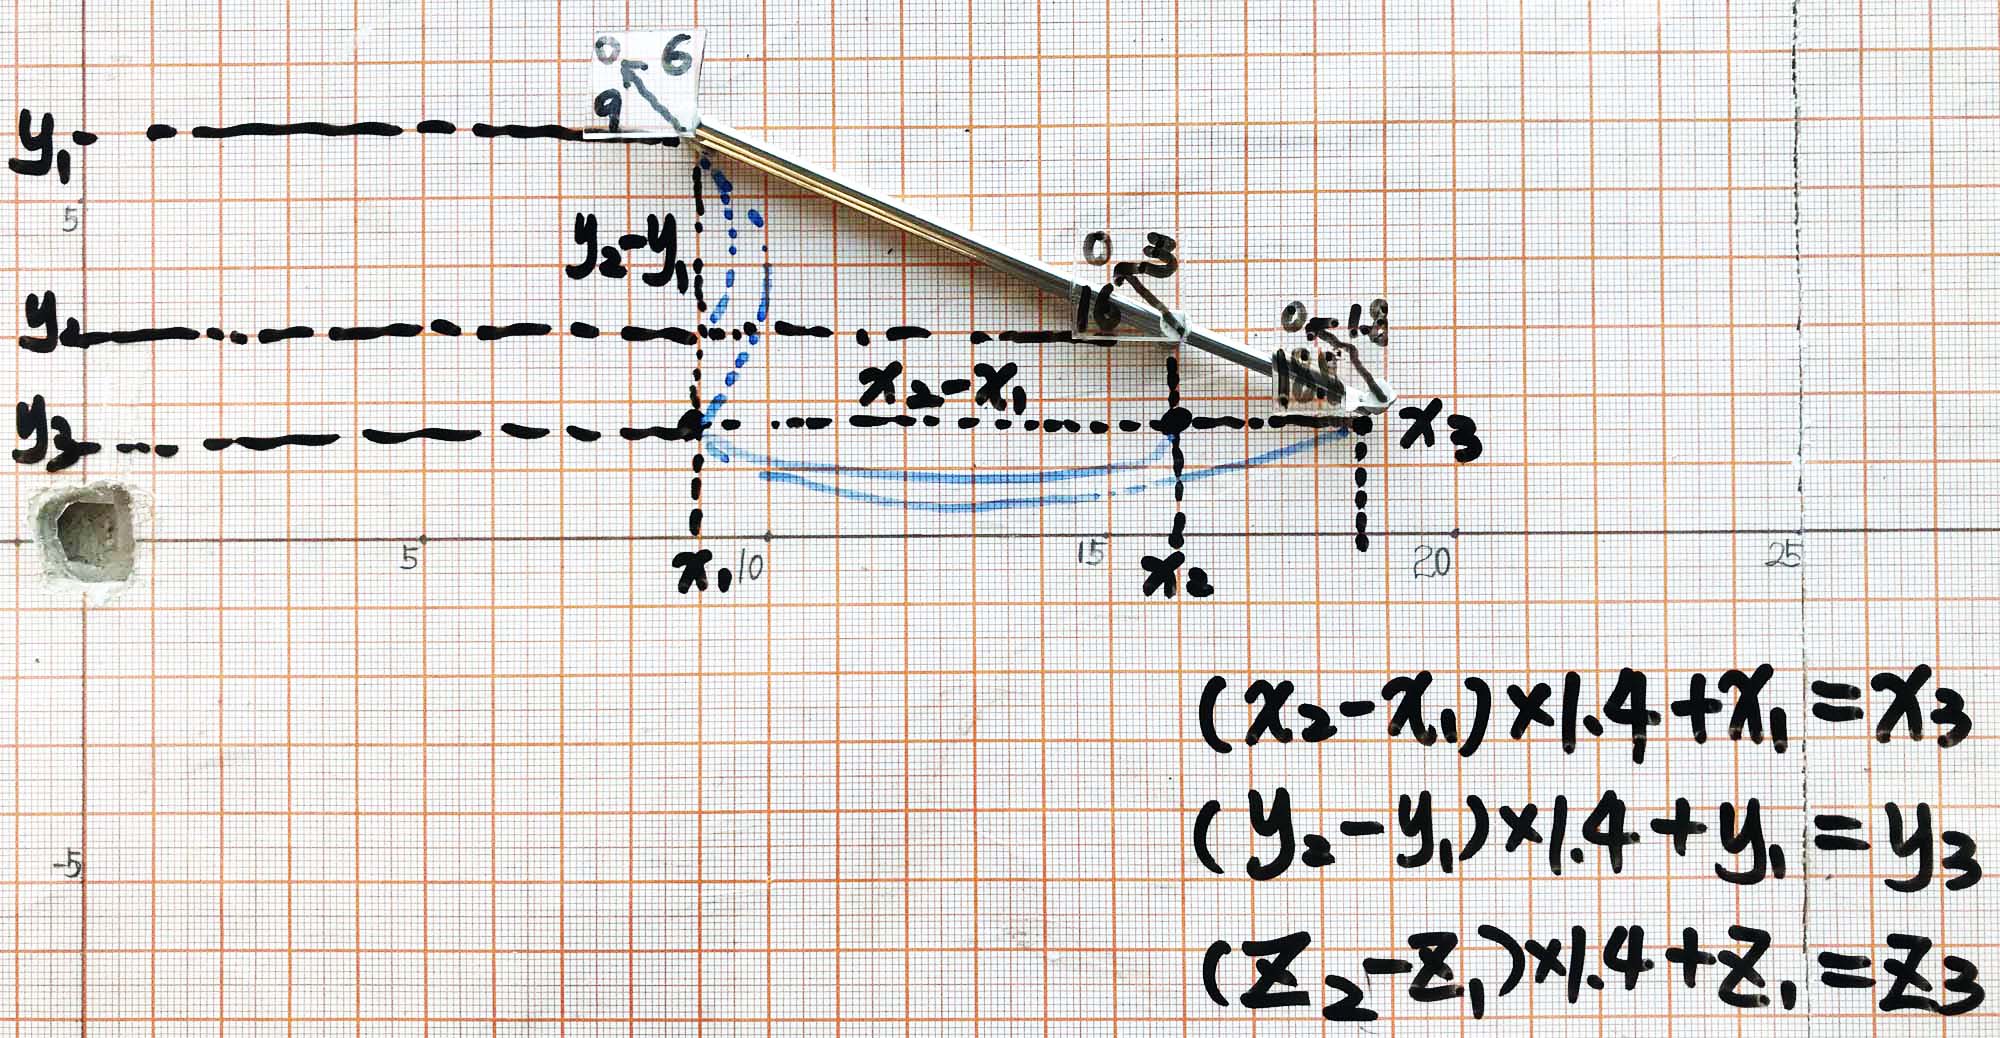 0 6
9
y₁
5
y₂-y₁
0 3
16
y₂
0 1.8
x₂-x₁
y₃
x₃
5 10 15 20 25
x₁ x₂
(x₂-x₁)×1.4+x₁=x₃
(y₂-y₁)×1.4+y₁=y₃
-5
(z₂-z₁)×1.4+z₁=z₃